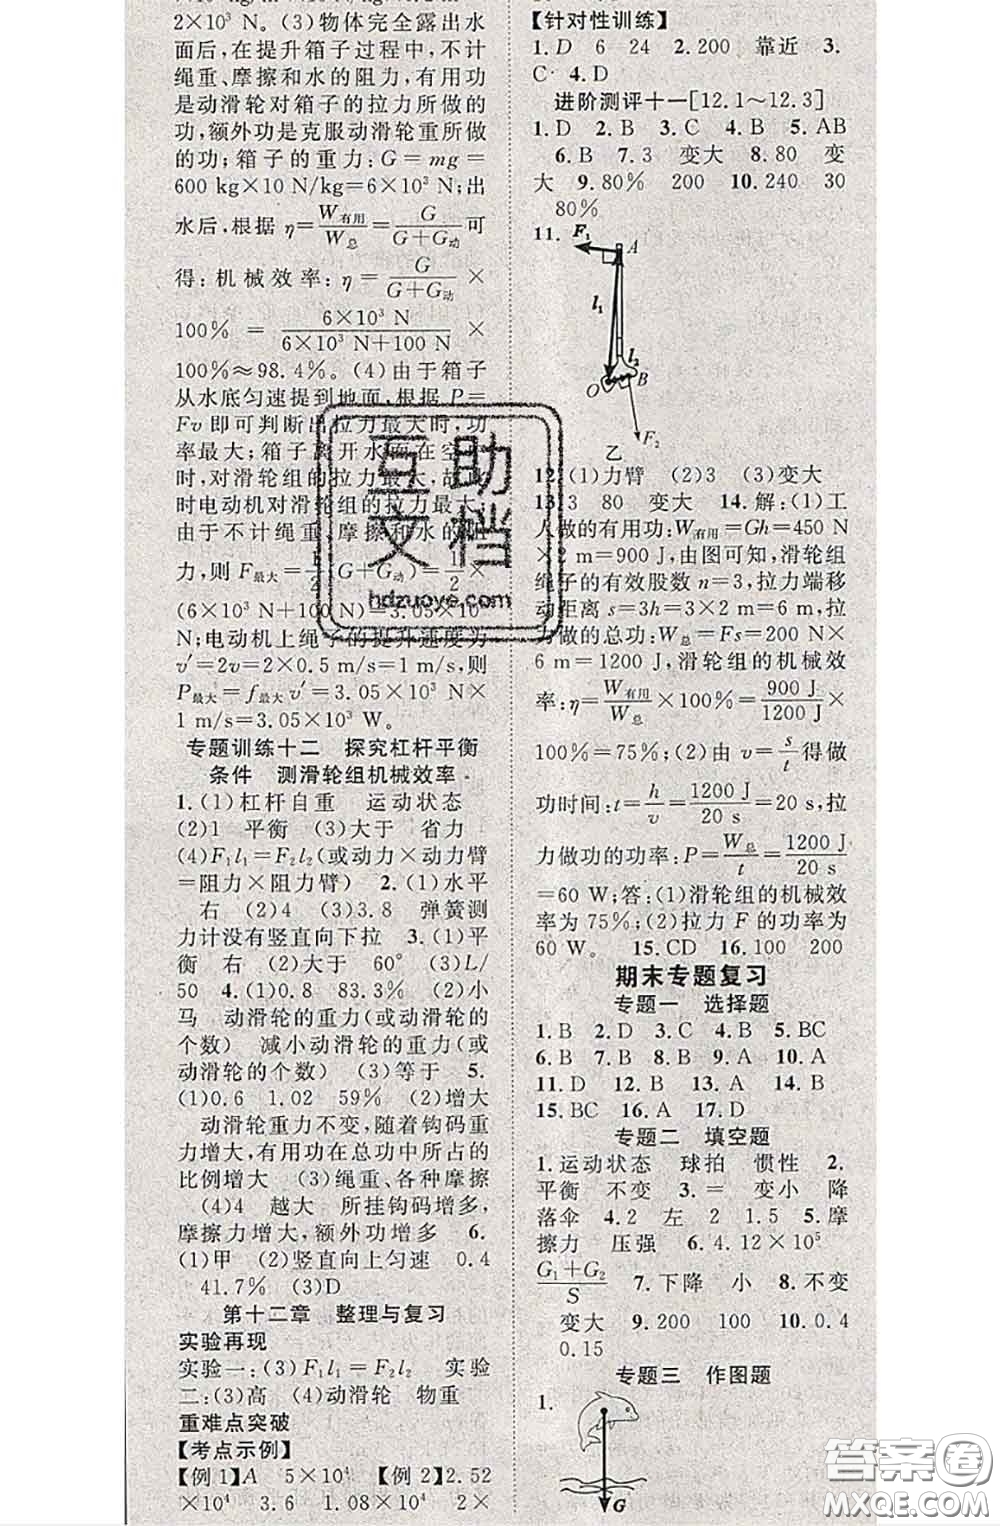 2×10³ N。(3)物体完全露出水
面后,在提升箱子过程中,不计
绳重、摩擦和水的阻力,有用功
是动滑轮对箱子的拉力所做的
功,额外功是克服动滑轮重所做
的功;箱子的重力:G=mg=
600 kg×10 N/kg=6×10³ N;出
水后,根据 η=W有用/W总=G/(G+G动)可
得:机械效率:η=G/(G+G动)×
100%=6×10³ N/(6×10³ N+100 N)×
100%≈98.4%。(4)由于箱子
从水底匀速提到地面,根据 P=
Fv 即可判断出拉力最大时,功
率最大;箱子离开水面在空
时,对滑轮组的拉力最大,故此
时电动机对滑轮组的拉力最大,
由于不计绳重、摩擦和水的阻
力,则 F最大=1/2(G+G动)=1/2×
(6×10³ N+100 N)=3.05×10³
N;电动机上绳子的提升速度为
v′=2v=2×0.5 m/s=1 m/s,则
P最大=f最大v′=3.05×10³ N×
1 m/s=3.05×10³ W。
专题训练十二 探究杠杆平衡
条件 测滑轮组机械效率
1.(1)杠杆自重 运动状态
(2)1 平衡 (3)大于 省力
(4)F₁l₁=F₂l₂(或动力×动力臂
=阻力×阻力臂) 2.(1)水平
右 (2)4 (3)3.8 弹簧测
力计没有竖直向下拉 3.(1)平
衡 右 (2)大于 60° (3)L/
50 4.(1)0.8 83.3% (2)小
马 动滑轮的重力(或动滑轮的
个数) 减小动滑轮的重力(或
动滑轮的个数) (3)等于 5.
(1)0.6 1.02 59% (2)增大
动滑轮重力不变,随着钩码重
力增大,有用功在总功中所占的
比例增大 (3)绳重、各种摩擦
(4)4 越大 所挂钩码增多,
摩擦力增大,额外功增多 6.
(1)甲 (2)竖直向上匀速 0.4
41.7% (3)D
第十二章 整理与复习
实验再现
实验一:(3)F₁l₁=F₂l₂ 实验
二:(3)高 (4)动滑轮 物重
重难点突破
【考点示例】
【例 1】A 5×10⁴ 【例 2】2.52
×10⁴ 3.6 1.08×10⁴ 2×
【针对性训练】
1.D 6 24 2.200 靠近 3.
C 4.D
进阶测评十一[12.1～12.3]
1.D 2.B 3.C 4.B 5.AB
6.B 7.3 变大 8.80 变
大 9.80% 200 10.240 30
80%
11.
F₁
A
l₁
l₂
O
B
F₂
乙
12.(1)力臂 (2)3 (3)变大
13.3 80 变大 14.解:(1)工
人做的有用功:W有用=Gh=450 N
×2 m=900 J,由图可知,滑轮组
绳子的有效股数 n=3,拉力端移
动距离 s=3h=3×2 m=6 m,拉
力做的总功:W总=Fs=200 N×
6 m=1200 J,滑轮组的机械效
率:η=W有用/W总×100%=900 J/1200 J×
100%=75%;(2)由 v=s/t得做
功时间:t=h/v=1200 J/20 s=20 s,拉
力做功的功率:P=W总/t=1200 J/20 s
=60 W;答:(1)滑轮组的机械效
率为 75%;(2)拉力 F 的功率为
60 W。 15.CD 16.100 200
期末专题复习
专题一 选择题
1.B 2.D 3.C 4.B 5.BC
6.B 7.B 8.B 9.A 10.A
11.D 12.B 13.A 14.B
15.BC 16.A 17.D
专题二 填空题
1.运动状态 球拍 惯性 2.
平衡 不变 3.= 变小 降
落伞 4.2 左 2 1.5 5.摩
擦力 压强 6.4.12×10⁵
(G₁+G₂)/S 7.下降 小 8.不变
变大 9.200 100 10.0.4
0.15
专题三 作图题
1.
G
互助
文档
hdzuoye.com
答案圈
MXQE.COM